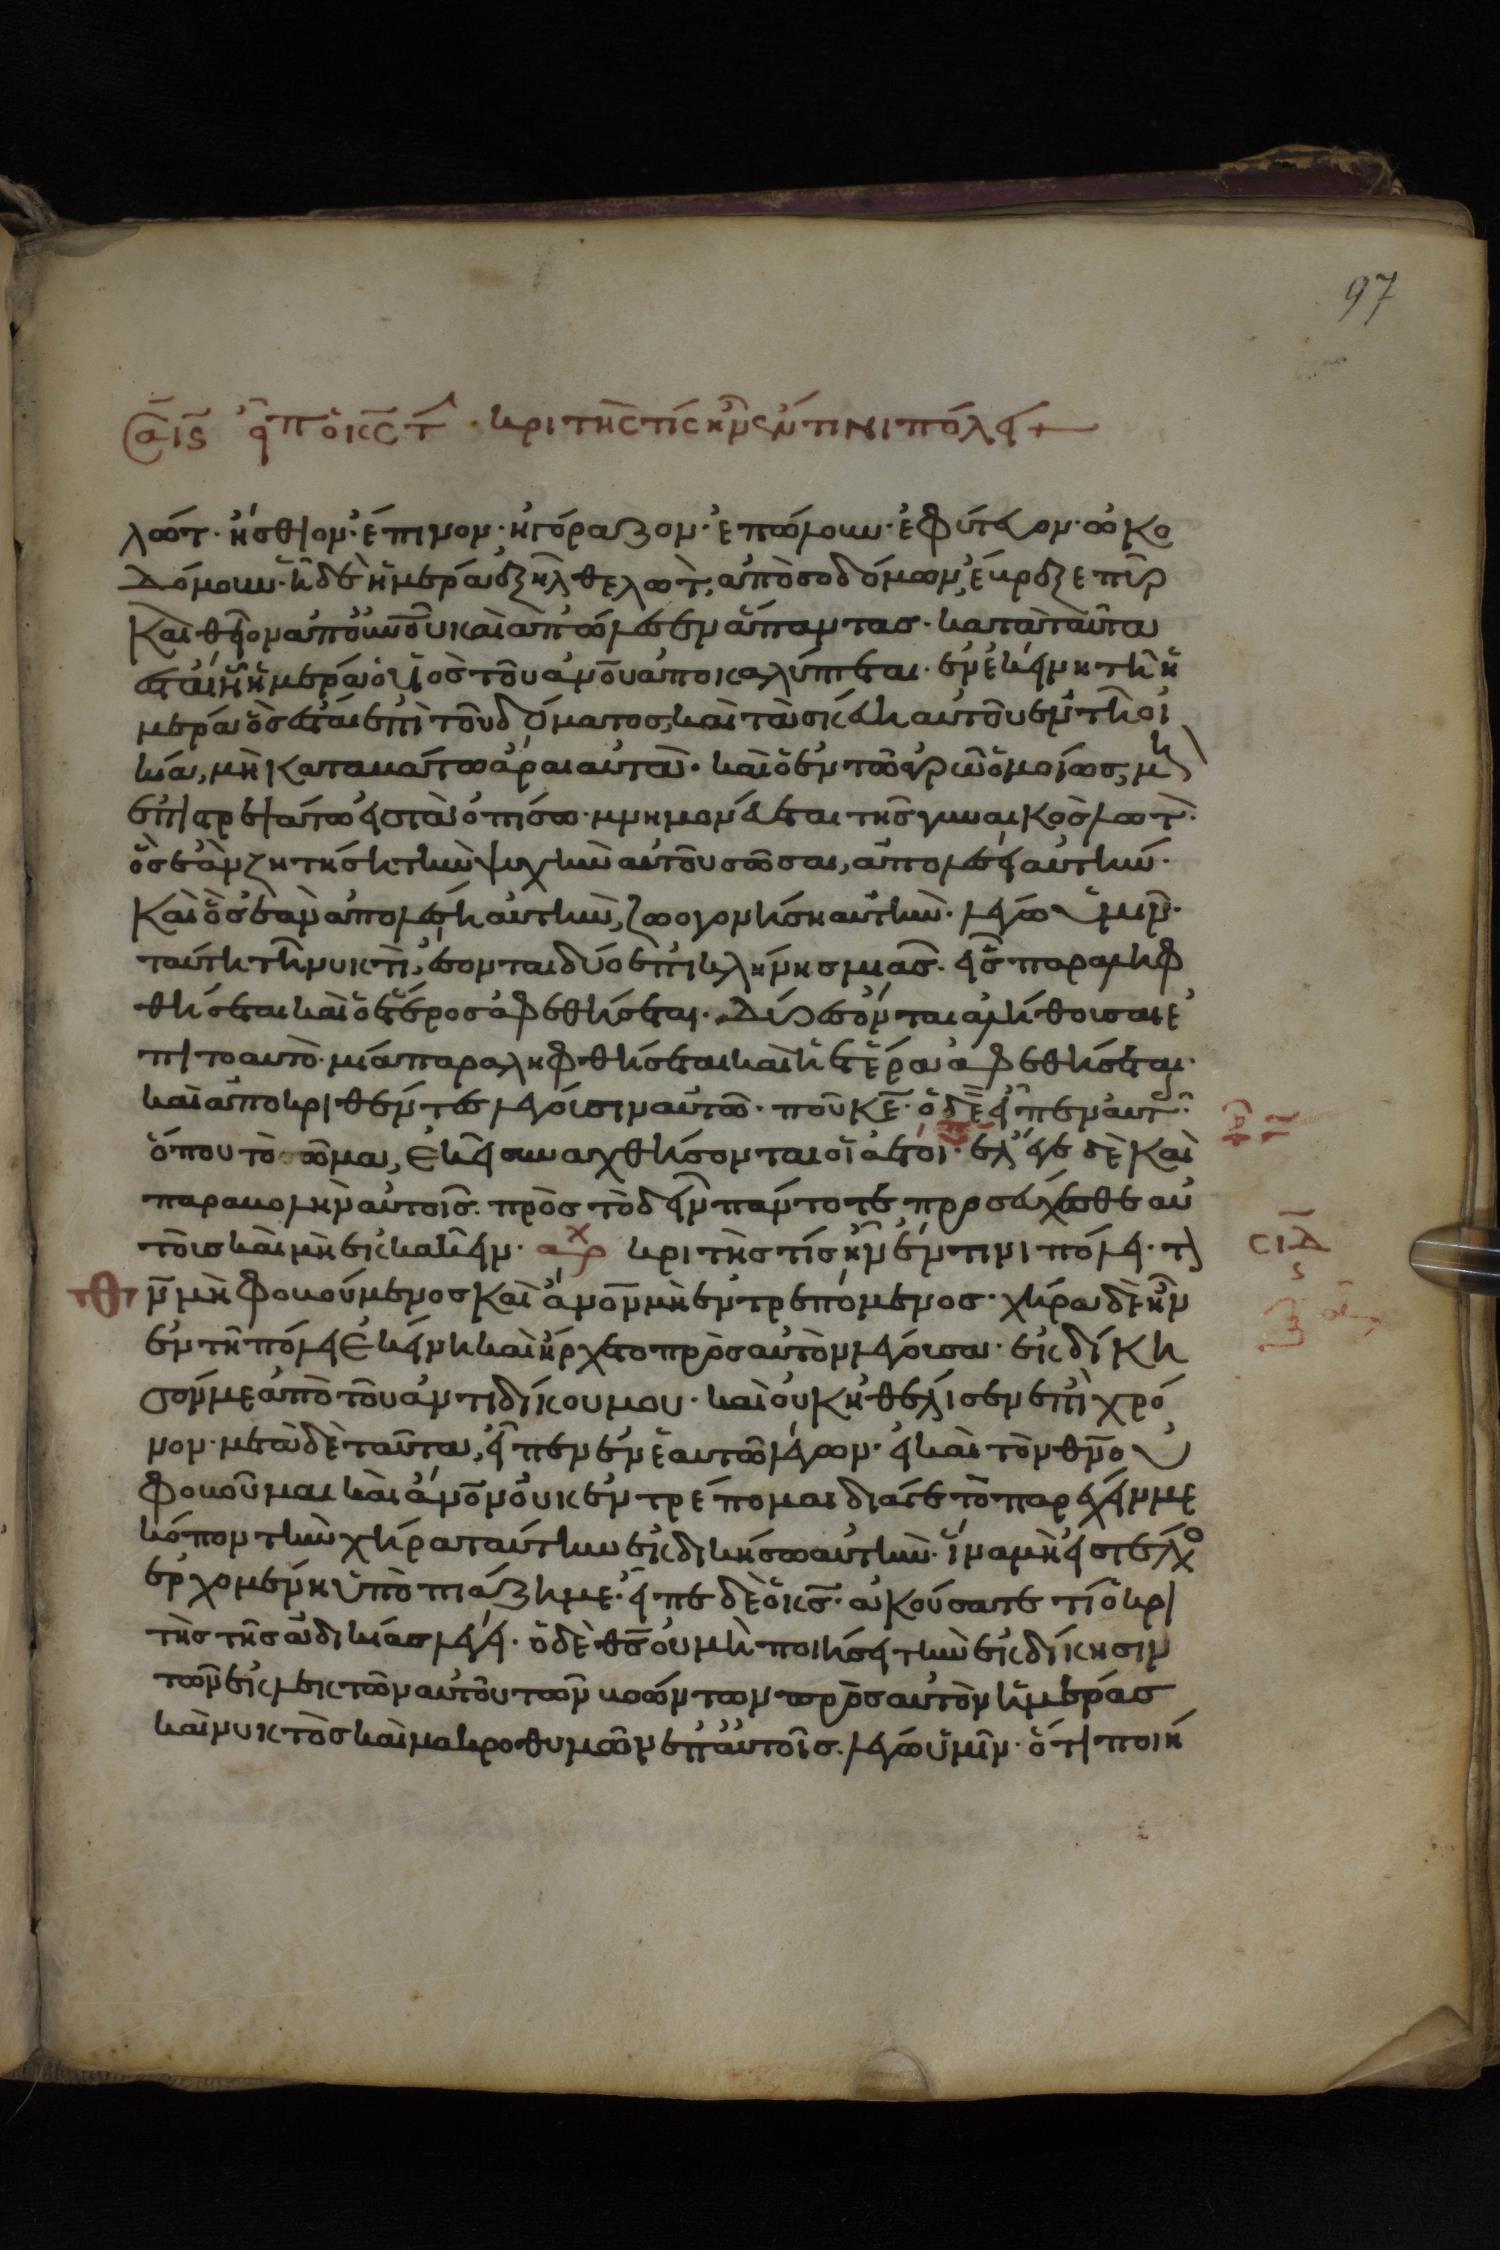 97
εἶπεν ὁ κ̅ς̅ τ · κριτής τις ἦν ἔν τινι πόλει
λώτ · ἤσθιον · ἔπινον · ἠγόραζον · ἐπώλουν · ἐφύτευον · ὠκο
δόμουν · ἧ δὲ ἡμέρα ἐξῆλθε λὼτ, ἀπὸ σοδόμων, ἔβρεξε πῦρ
καὶ θεῖον ἀπ' οὐ̅ν̅ο̅υ̅ καὶ ἀπώλεσεν ἅπαντας · κατὰ ταῦτα
ἔσται ἧ ἡμέρα ὁ υἱὸς τοῦ ἀ̅ν̅ο̅υ̅ ἀποκαλύπτεται · ἐν ἐκείνη τῆ ἡ
μέρα ὃς ἔσται ἐπὶ τοῦ δόματος, καὶ τὰ σκεύη αὐτοῦ ἐν τῆ οἰ
κία, μὴ καταβάτω ἆραι αὐτά · καὶ ὁ ἐν τῶ ἀγρῶ ὁμοίως, μὴ
ἐπιστρεψάτω εἰς τὰ ὀπίσω · μνημονεύεται τῆς γυναικὸς λώτ ·
ὃς ἐὰν ζητήση τὴν ψυχὴν αὐτοῦ σῶσαι, ἀπολέσει αὐτήν ·
καὶ ὃς ἐὰν ἀπολέση αὐτὴν, ζωογονήση αὐτήν · λέγω ὑμῖν ·
ταύτη τῆ νυκτὶ, ἔσονται δύο ἐπὶ κλήνης μιᾶς · εἷς παραληφ
θήσεται καὶ ὁ ἕτερος ἀφεθήσεται · δύο ἔσονται ἀλήθουσαι ἐ
πὶ το αυτό · μία παραληφθήσεται καὶ ἡ ἑτέρα ἀφεθήσεται ·
καὶ ἀποκριθέντες λέγουσιν αὐτῶ · ποῦ κ̅ε̅ · ὁ δὲ εἶπεν αὐτοῖς ·
ὅπου τὸ σῶμα, ἐκεῖ συναχθήσονται οἱ ἀετοί · ἔλεγε δὲ καὶ
παραβολὴν αὐτοῖς · πρὸς τὸ δεῖν πάντοτε προσεύχεσθε αὐ
τοὺς καὶ μὴ ἐκκακεῖν · αρχ κριτής τις ἦν ἔν τινι πόλει · τ
ν̅ μὴ φοβούμενος καὶ ἀ̅ν̅ο̅ν̅ μὴ ἐντρεπόμενος · χήρα δὲ ἦν
ἐν τῆ πόλει ἐκείνη καὶ ἤρχετο πρὸς αὐτὸν λέγουσα · ἐκδίκη
σόν με ἀπὸ τοῦ ἀντιδίκου μου · καὶ οὐκ ἠθέλισεν ἐπὶ χρό
νον · μετὰ δὲ ταῦτα, εἶπεν ἐν ἑαυτῶ λέγων · εἰ καὶ τὸν θ̅ν̅ οὐ
φοβοῦμαι καὶ ἀ̅ν̅ο̅ν̅ οὐκ ἐντρέπομαι διάγε τὸ παρέχειν με
κόπον τὴν χήρα ταύτην ἐκδικήσω αὐτήν · ἵνα μὴ εἰς τέλος
ἐρχομένη ὑποπιάζη με · εἶπε δὲ ὁ κ̅ς̅ · ἀκούσατε τί ὁ κρι
τὴς τῆς ἀδικίας λέγει · ὁ δὲ θ̅ς̅ οὐ μὴ ποιήσει τὴν ἐκδίκησιν
τῶν ἐκλεκτῶν αὐτοῦ τῶν βοώντων πρὸς αὐτὸν ἡμέρας
καὶ νυκτὸς καὶ μακροθυμῶν ἐπ' αὐτοῖς · λέγω ὑμῖν · ὅτι ποιή